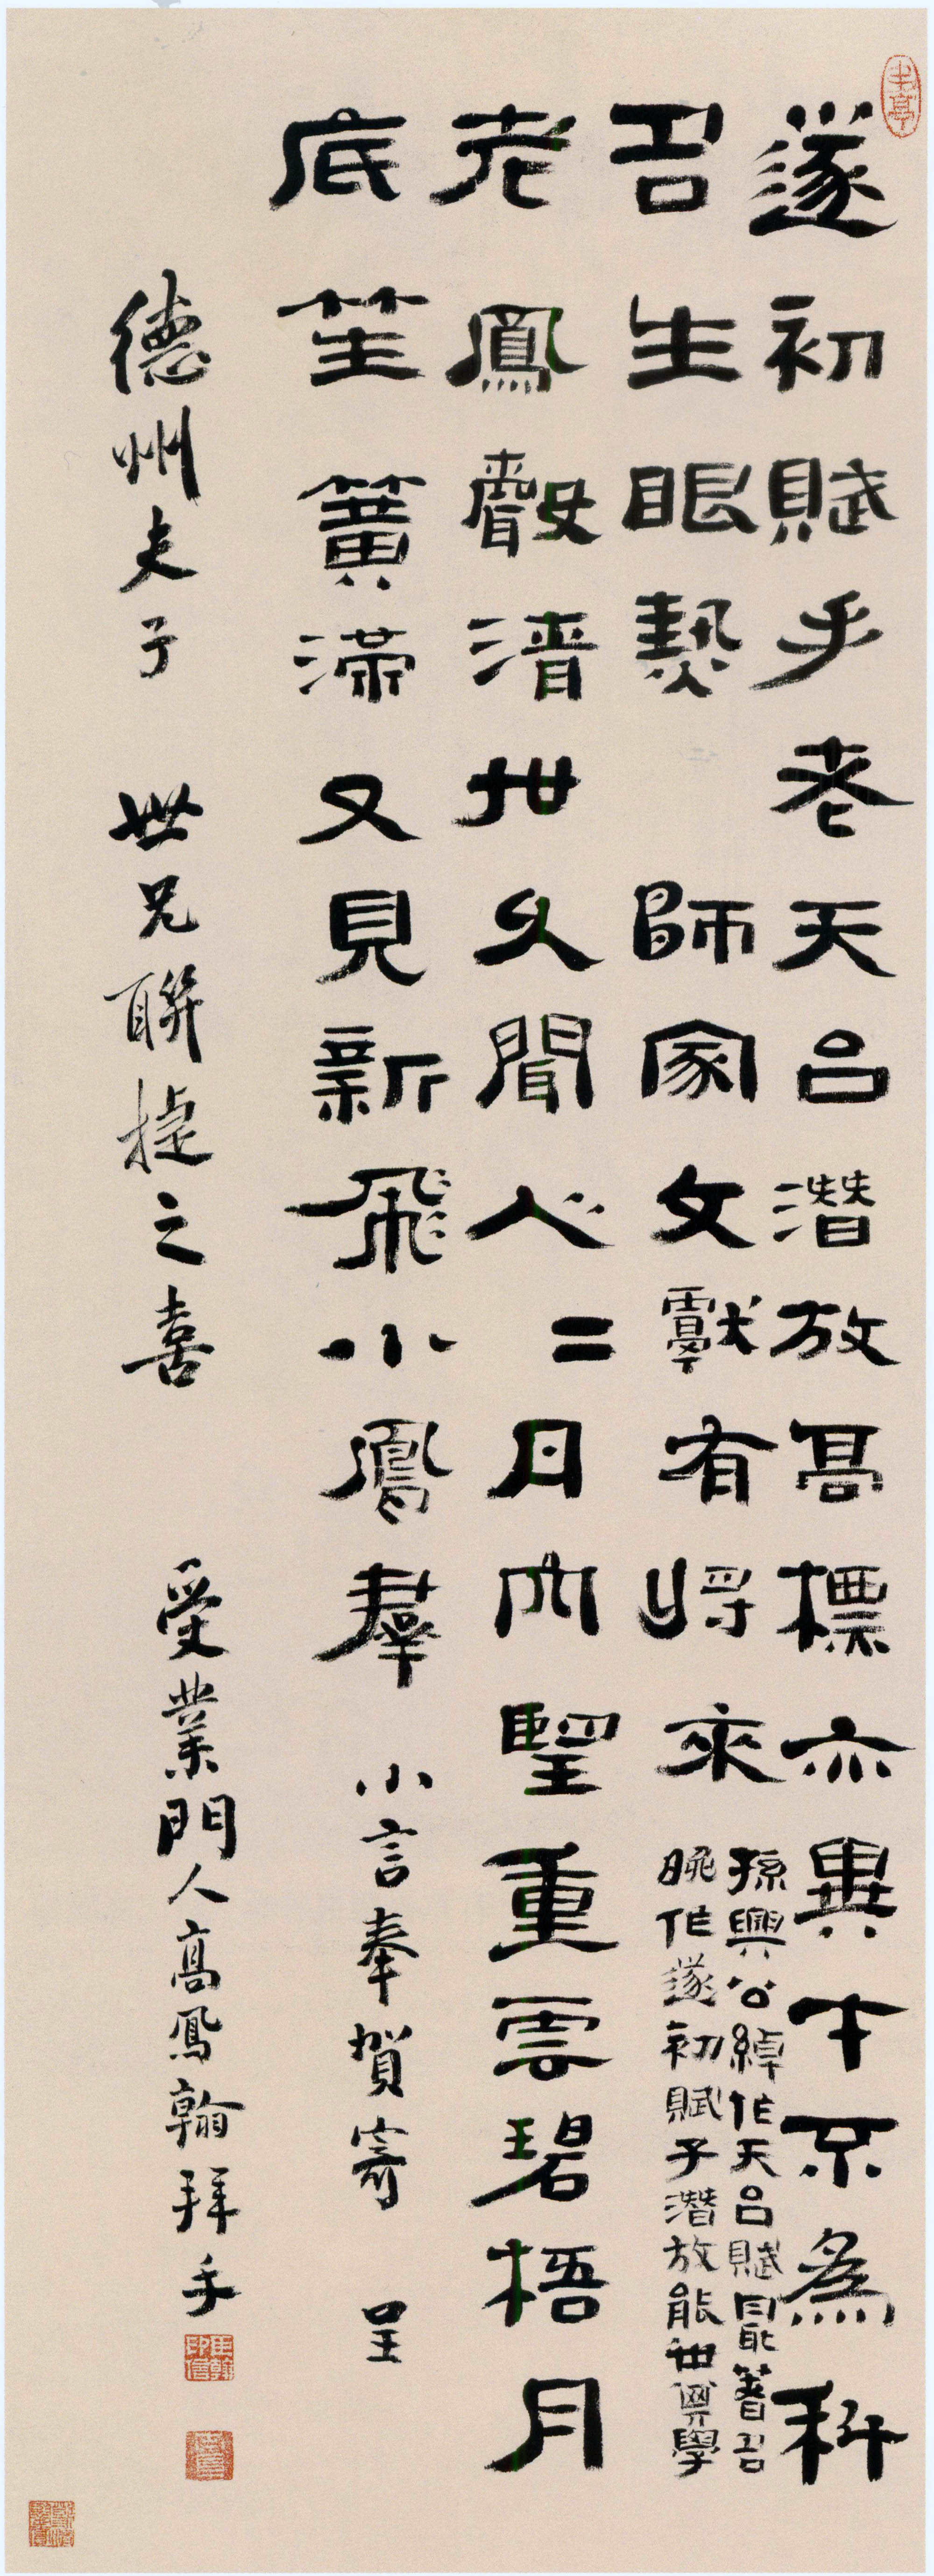 半亭
遂初賦手老天台潛放高標亦異才不為科
名生眼熱 師家文獻有將來
孫興公綽作天台賦最著名
晚作遂初賦子潛放能世其學
老鳳聲清世久聞人二丹穴望重雲碧梧月
底笙簧滿又見新飛小鳳羣 小言奉賀寄 呈
德州夫子 世兄聯捷之喜 受業門人高鳳翰拜手